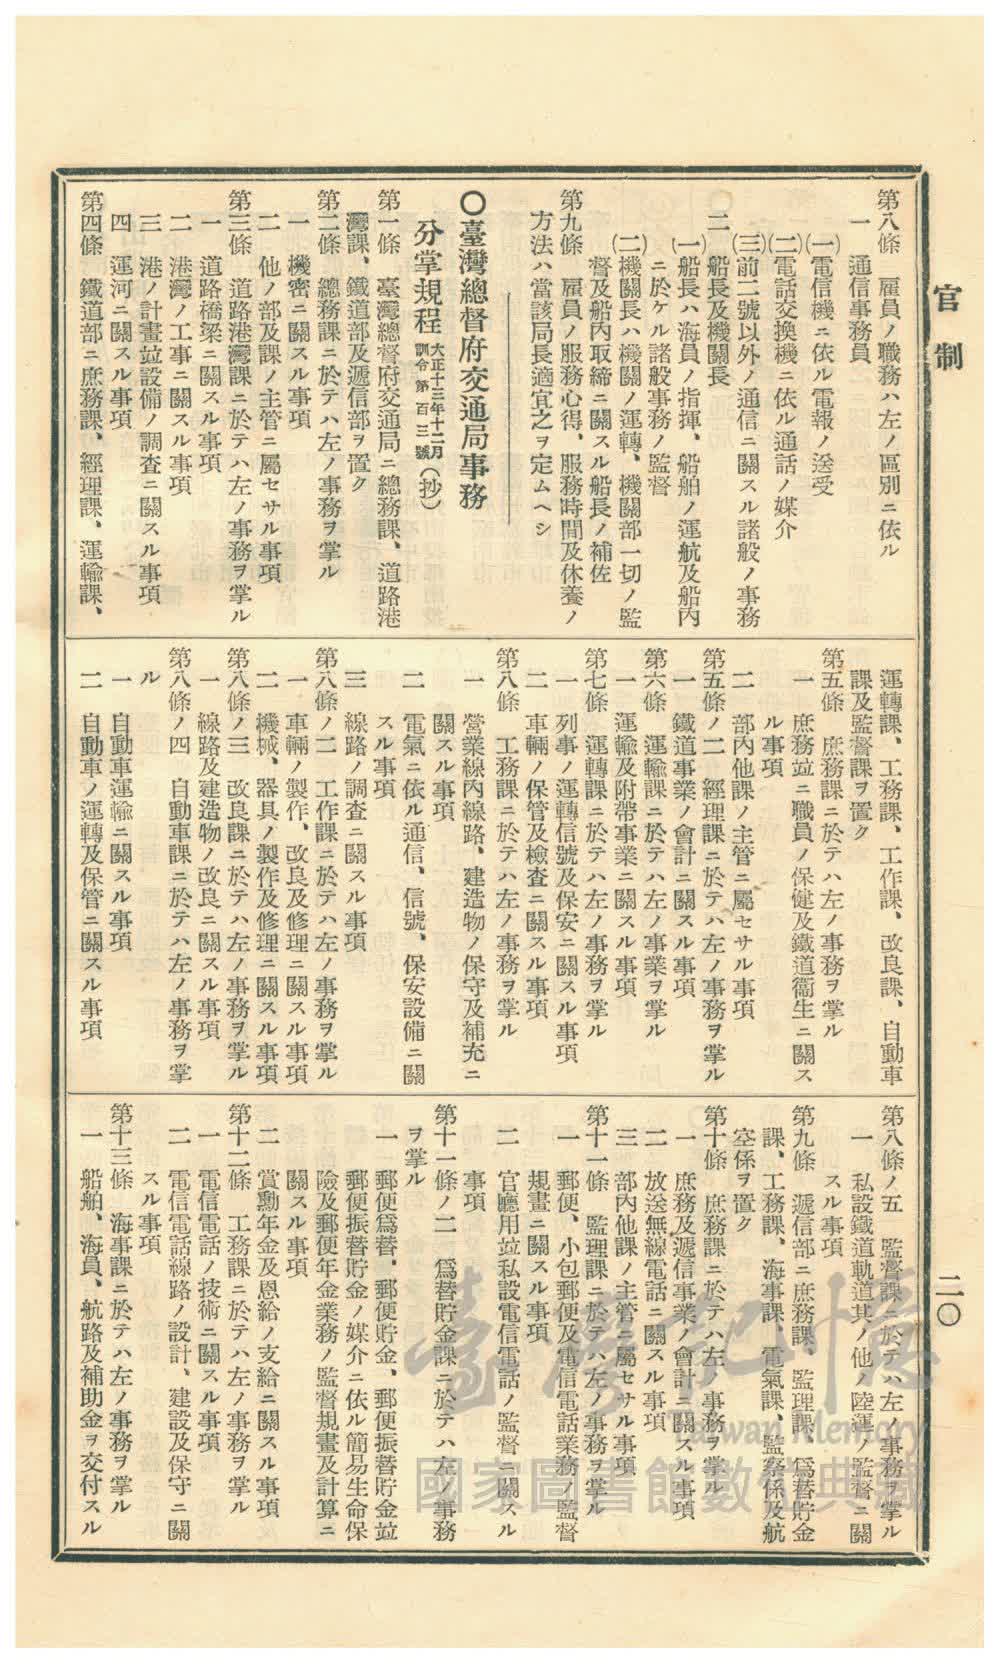 官制
二〇
第八條　雇員ノ職務ハ左ノ區別ニ依ル
一　通信事務員
(一)電信機ニ依ル電報ノ送受
(二)電話交換機ニ依ル通話ノ媒介
(三)前二號以外ノ通信ニ關スル諸般ノ事務
二　船長及機關長
(一)船長ハ海員ノ指揮、船舶ノ運航及船內
ニ於ケル諸般事務ノ監督
(二)機關長ハ機關ノ運轉、機關部一切ノ監
督及船內取締ニ關スル船長ノ補佐
第九條　雇員ノ服務心得、服務時間及休養ノ
方法ハ當該局長適宜之ヲ定ムヘシ
〇臺灣總督府交通局事務
分掌規程 大正十三年十二月 訓令第百三號 (抄)
第一條　臺灣總督府交通局ニ總務課、道路港
灣課、鐵道部及遞信部ヲ置ク
第二條　總務課ニ於テハ左ノ事務ヲ掌ル
一　機密ニ關スル事項
二　他ノ部及課ノ主管ニ屬セサル事項
第三條　道路港灣課ニ於テハ左ノ事務ヲ掌ル
一　道路橋梁ニ關スル事項
二　港灣ノ工事ニ關スル事項
三　港ノ計畫竝設備ノ調査ニ關スル事項
四　運河ニ關スル事項
第四條　鐵道部ニ庶務課、經理課、運輸課、
運轉課、工務課、工作課、改良課、自動車
課及監督課ヲ置ク
第五條　庶務課ニ於テハ左ノ事務ヲ掌ル
一　庶務竝ニ職員ノ保健及鐵道衞生ニ關ス
ル事項
二　部內他課ノ主管ニ屬セサル事項
第五條ノ二　經理課ニ於テハ左ノ事務ヲ掌ル
一　鐵道事業ノ會計ニ關スル事項
第六條　運輸課ニ於テハ左ノ事業ヲ掌ル
一　運輸及附帶事業ニ關スル事項
第七條　運轉課ニ於テハ左ノ事務ヲ掌ル
一　列車ノ運轉信號及保安ニ關スル事項
二　車輛ノ保管及檢査ニ關スル事項
第八條　工務課ニ於テハ左ノ事務ヲ掌ル
一　營業線內線路、建造物ノ保守及補充ニ
關スル事項
二　電氣ニ依ル通信、信號、保安設備ニ關
スル事項
三　線路ノ調査ニ關スル事項
第八條ノ二　工作課ニ於テハ左ノ事務ヲ掌ル
一　車輛ノ製作、改良及修理ニ關スル事項
二　機械、器具ノ製作及修理ニ關スル事項
第八條ノ三　改良課ニ於テハ左ノ事務ヲ掌ル
一　線路及建造物ノ改良ニ關スル事項
第八條ノ四　自動車課ニ於テハ左ノ事務ヲ掌
ル
一　自動車運輸ニ關スル事項
二　自動車ノ運轉及保管ニ關スル事項
第八條ノ五　監督課ニ於テハ左ノ事務ヲ掌ル
一　私設鐵道軌道其ノ他ノ陸運ノ監督ニ關
スル事項
第九條　遞信部ニ庶務課、監理課、爲替貯金
課、工務課、海事課、電氣課、監察係及航
空係ヲ置ク
第十條　庶務課ニ於テハ左ノ事務ヲ掌ル
一　庶務及遞信事業ノ會計ニ關スル事項
二　放送無線電話ニ關スル事項
三　部內他課ノ主管ニ屬セサル事項
第十一條　監理課ニ於テハ左ノ事務ヲ掌ル
一　郵便、小包郵便及電信電話業務ノ監督
規畫ニ關スル事項
二　官廳用竝私設電信電話ノ監督ニ關スル
事項
第十一條ノ二　爲替貯金課ニ於テハ左ノ事務
ヲ掌ル
一　郵便爲替、郵便貯金、郵便振替貯金竝
郵便振替貯金ノ媒介ニ依ル簡易生命保
險及郵便年金業務ノ監督規畫及計算ニ
關スル事項
二　賞勳年金及恩給ノ支給ニ關スル事項
第十二條　工務課ニ於テハ左ノ事務ヲ掌ル
一　電信電話ノ技術ニ關スル事項
二　電信電話線路ノ設計、建設及保守ニ關
スル事項
第十三條　海事課ニ於テハ左ノ事務ヲ掌ル
一　船舶、海員、航路及補助金ヲ交付スル
臺灣記憶
Taiwan Memory
國家圖書館數位典藏